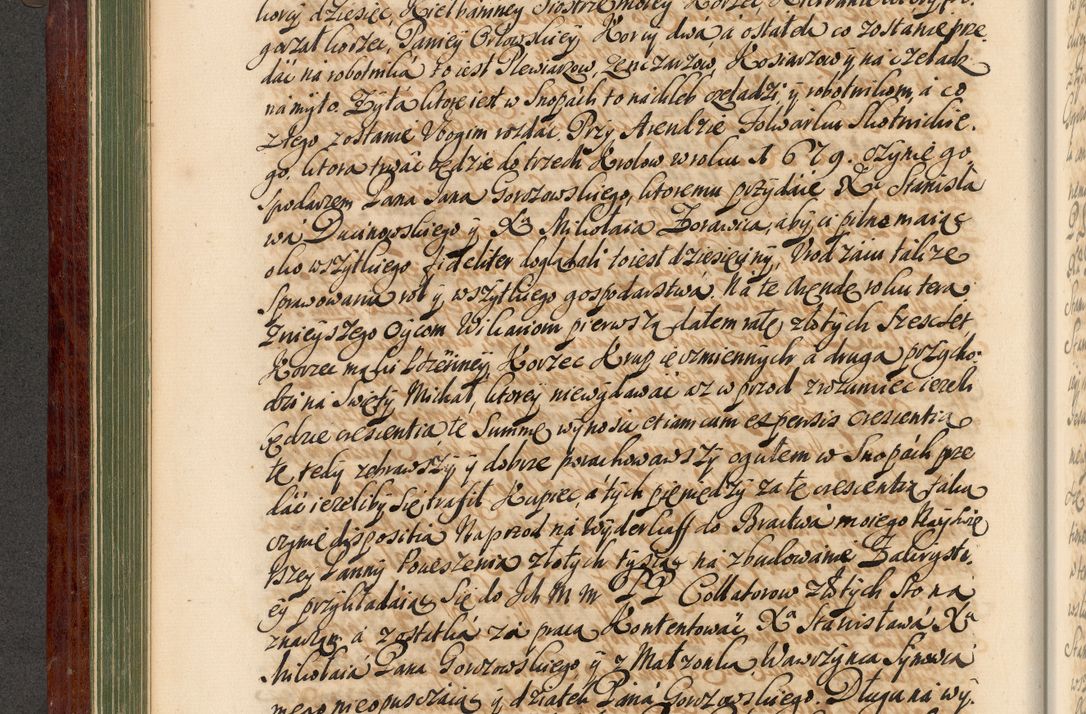 korcy dziesięć, Kiełbaniney Siostrze moiey Korzec,
gorzał korzec, Paniey Orłowskiey Korcy dwá, á ostátek co zostanie prze
dáć ná robotniká to iest Plewiarzow, Zenczarzow, Kosiarzow y na czeladz
na myto. Zytá ktore iest w Snopách to ná chleb czeladzi y robotnikom, á co
z tego zostanie Vbogim rozdáć. Przy Arendzie Folwarku Skotnickie
go, ktora trwáć będzie do trzech Krolow w roku 1679. czynię go
spodarzem Pana Jana Gorozowskiego, ktoremu przydáię Xa Stanisła
wá Ducinowskiego y Xa Mikołaia Zorawica, aby ci pilne maiąc
oko wszytkiego fideliter doglądali to iest dziesięciny, Vrodzaiu także
Sprawowania roli y wszytkiego gospodarstwá. Ná tę Arendę roku tera
znieyszego Oycom Wikariom pierwszą dałem ratę złotych Szescset
Korzec mąki Pszenney Korzec Krup ięczmiennych á druga przycho
dzi ná Swięty Michał, ktorey nie wydawáć áz w przod zrozumieć ieżeli
będzie crescentia tę Summę wynosić etiam cum expensis crescentia
tę tedy zebrawszy y dobrze porachowawszy ogułem w Snopách prze
dáć ieżeliby się trafił Kupiec, á tych pięniędzy zá tę crescentią táką
czynię dispositią Naprzod ná Wyderkaff do Bractwá moiego Nayświę
tszey Panny Pocieszenia złotych tysiąc ná zbudowanie Zakrysty
ey przykładáiąc się do Ich M M PP Collatorow złotych Sto ná
znaczam á z ostátká zá pracą Kontentowáć Xa Stanisławá Xa
Mikołaiá Pana Gorozowskiego y z Małzonką Wawrzyńca Synowca
mego nieopuszczáiąc y dziátek Páná Gorozowskiego. Długu ná wy